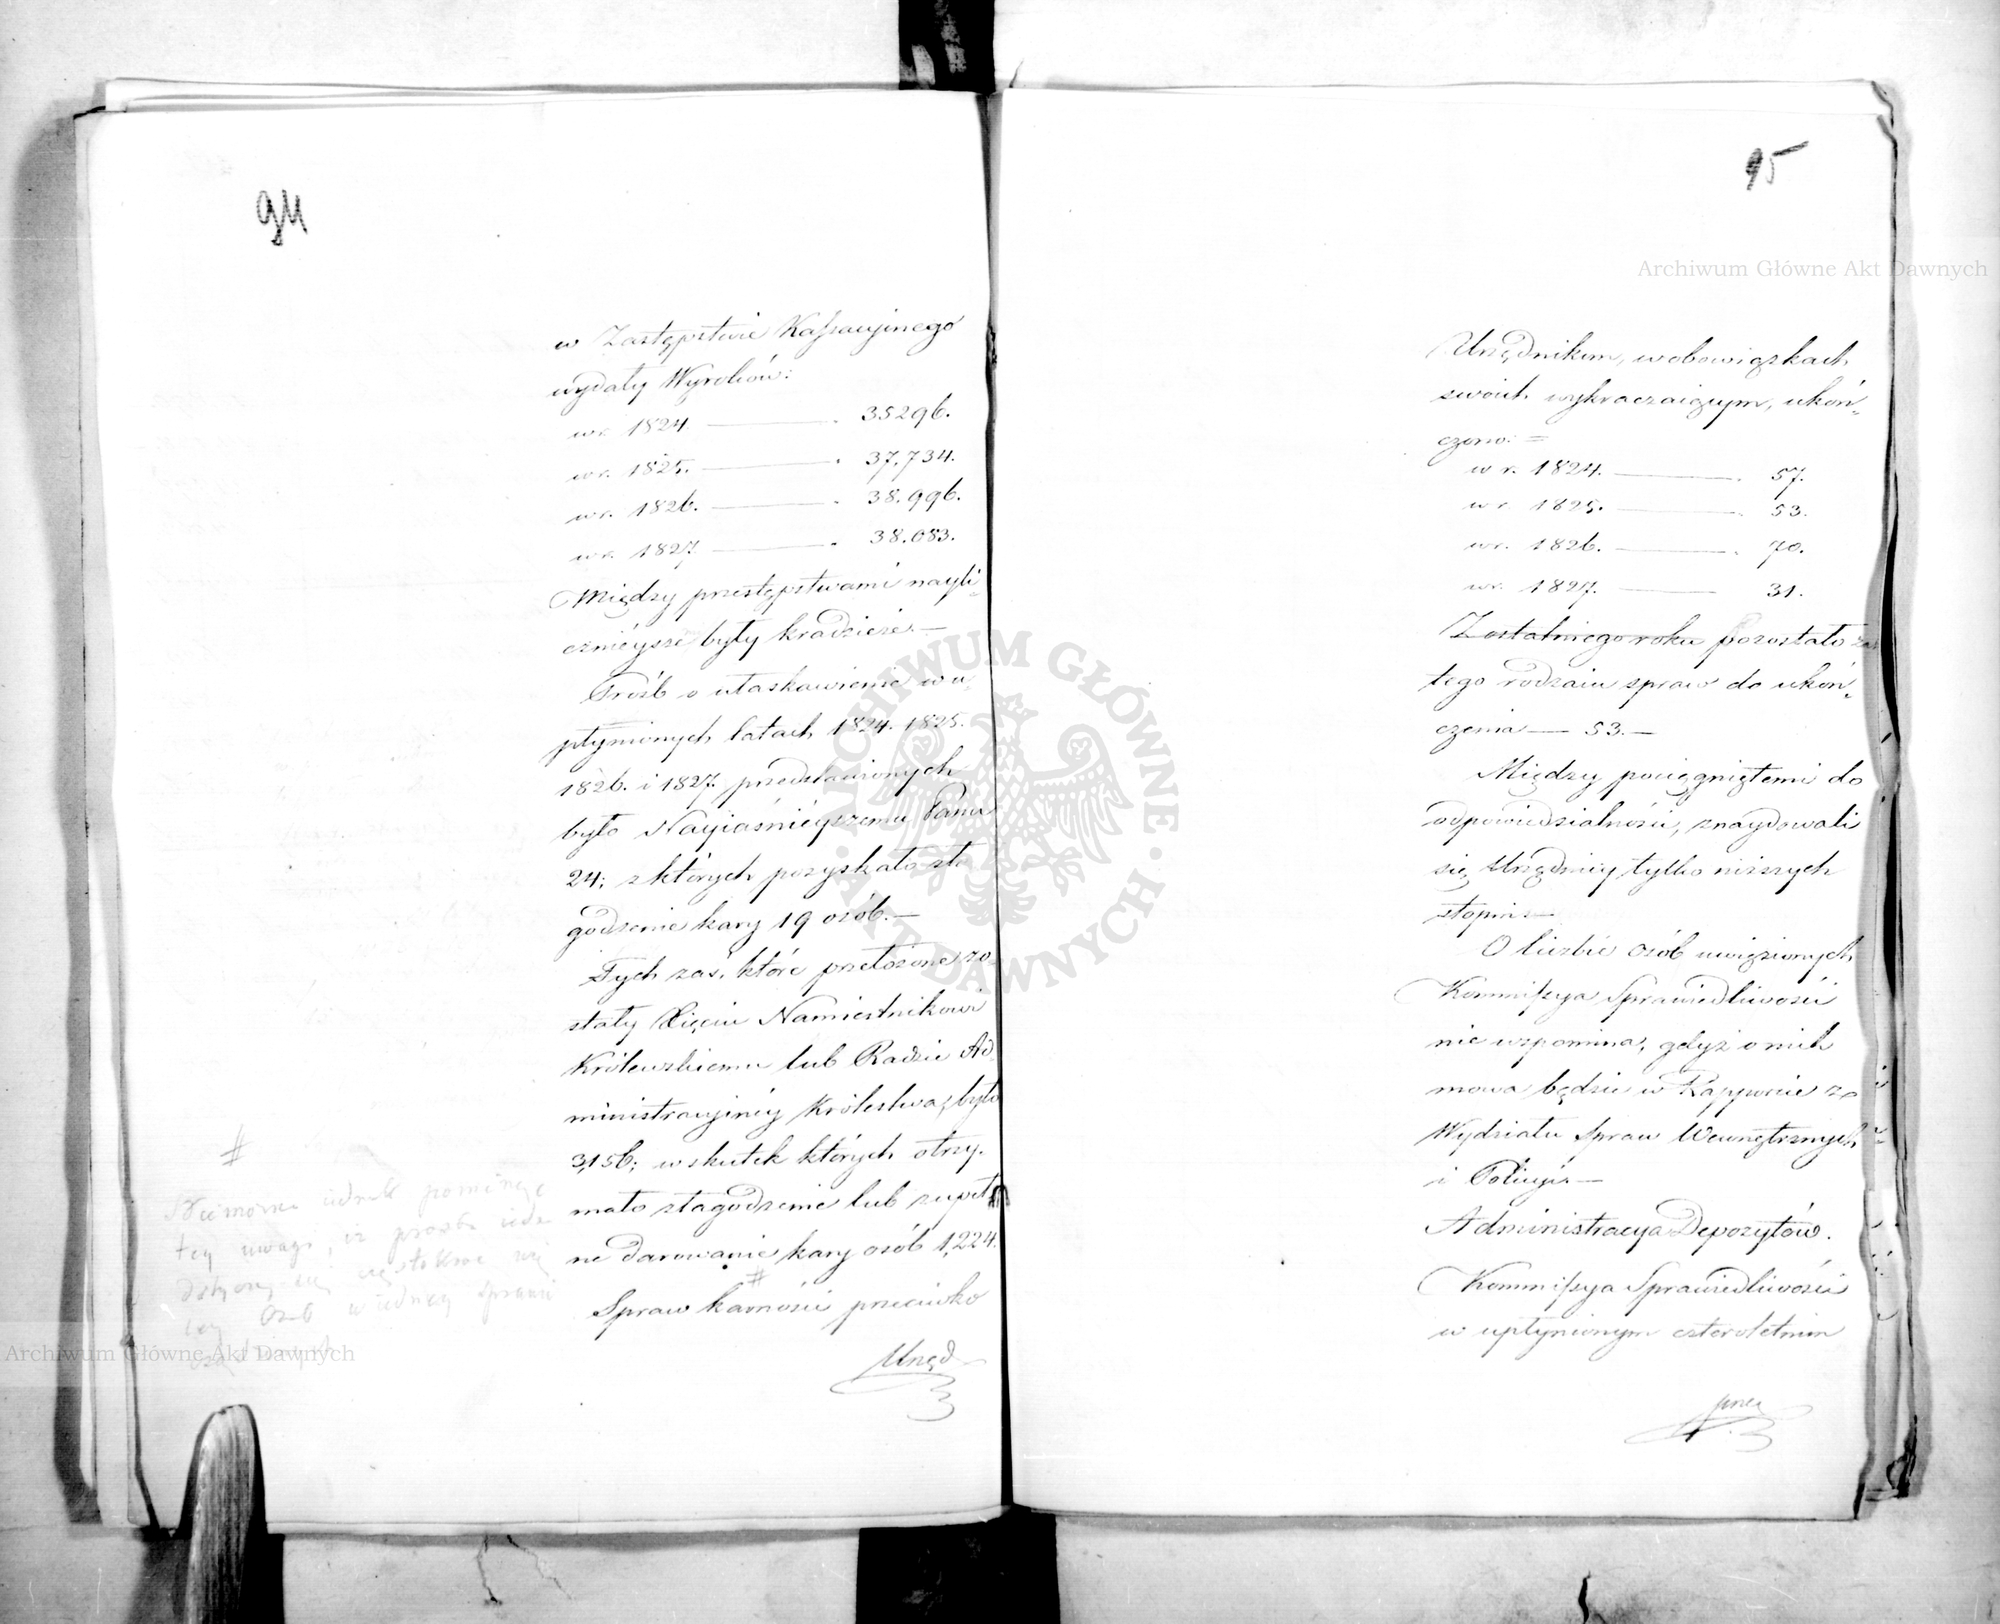 94
w Zastępstwie Kassacyinego
wydały Wyroków:
w r. 1824. 35296.
w r. 1825. 37,734.
w r. 1826. 38.996.
w r. 1827 38.083.
Między przestępstwami nayli-
cznieysze były kradzieże.—
Próśb o ułaskawienie w u-
płynionych latach 1824. 1825.
1826. i 1827. przedstawionych
było Nayiaśnieyszemu Panu
24; z których pozyskało zła
godzenie kary 19 osób.—
Tych zaś, które przełożone zo-
stały Xięciu Namiestnikowi
Królewskiemu lub Radzie Ad-
ministracyinéy Królestwa, było
3,156; w skutek których otrzy-
mało złagodzenie lub zupeł-
ne darowanie kary osób 1,224.
#
Spraw karności przeciwko
Urzęd
#
Nie można iednak pominąć
tey uwagi, iż prośba iedna
osób w iedney sprawie
95
Urzędnikom, w obowiązkach
swoich wykraczaiącym, ukoń-
czono: =
w r. 1824. 57.
w r. 1825. 53.
w r. 1826. 70.
w r. 1827. 31.
Z ostatniego roku pozostało zaś
tego rodzaiu spraw do ukoń-
czenia — 53.—
Między pociągniętemi do
odpowiedzialności, znaydowali
się Urzędnicy tylko niższych
stopni—
O liczbie osób uwięzionych
Kommissya Sprawiedliwości
nie wspomina, gdyż o nich
mowa będzie w Rapporcie z
Wydziału Spraw Wewnętrznych
i Policyi.—
Administracya Depozytów.
Kommissya Sprawiedliwości
w upłynionym czteroletnim
przec
Archiwum Główne Akt Dawnych
Archiwum Główne Akt Dawnych
ARCHIWUM GŁÓWNE · AKT DAWNYCH ·